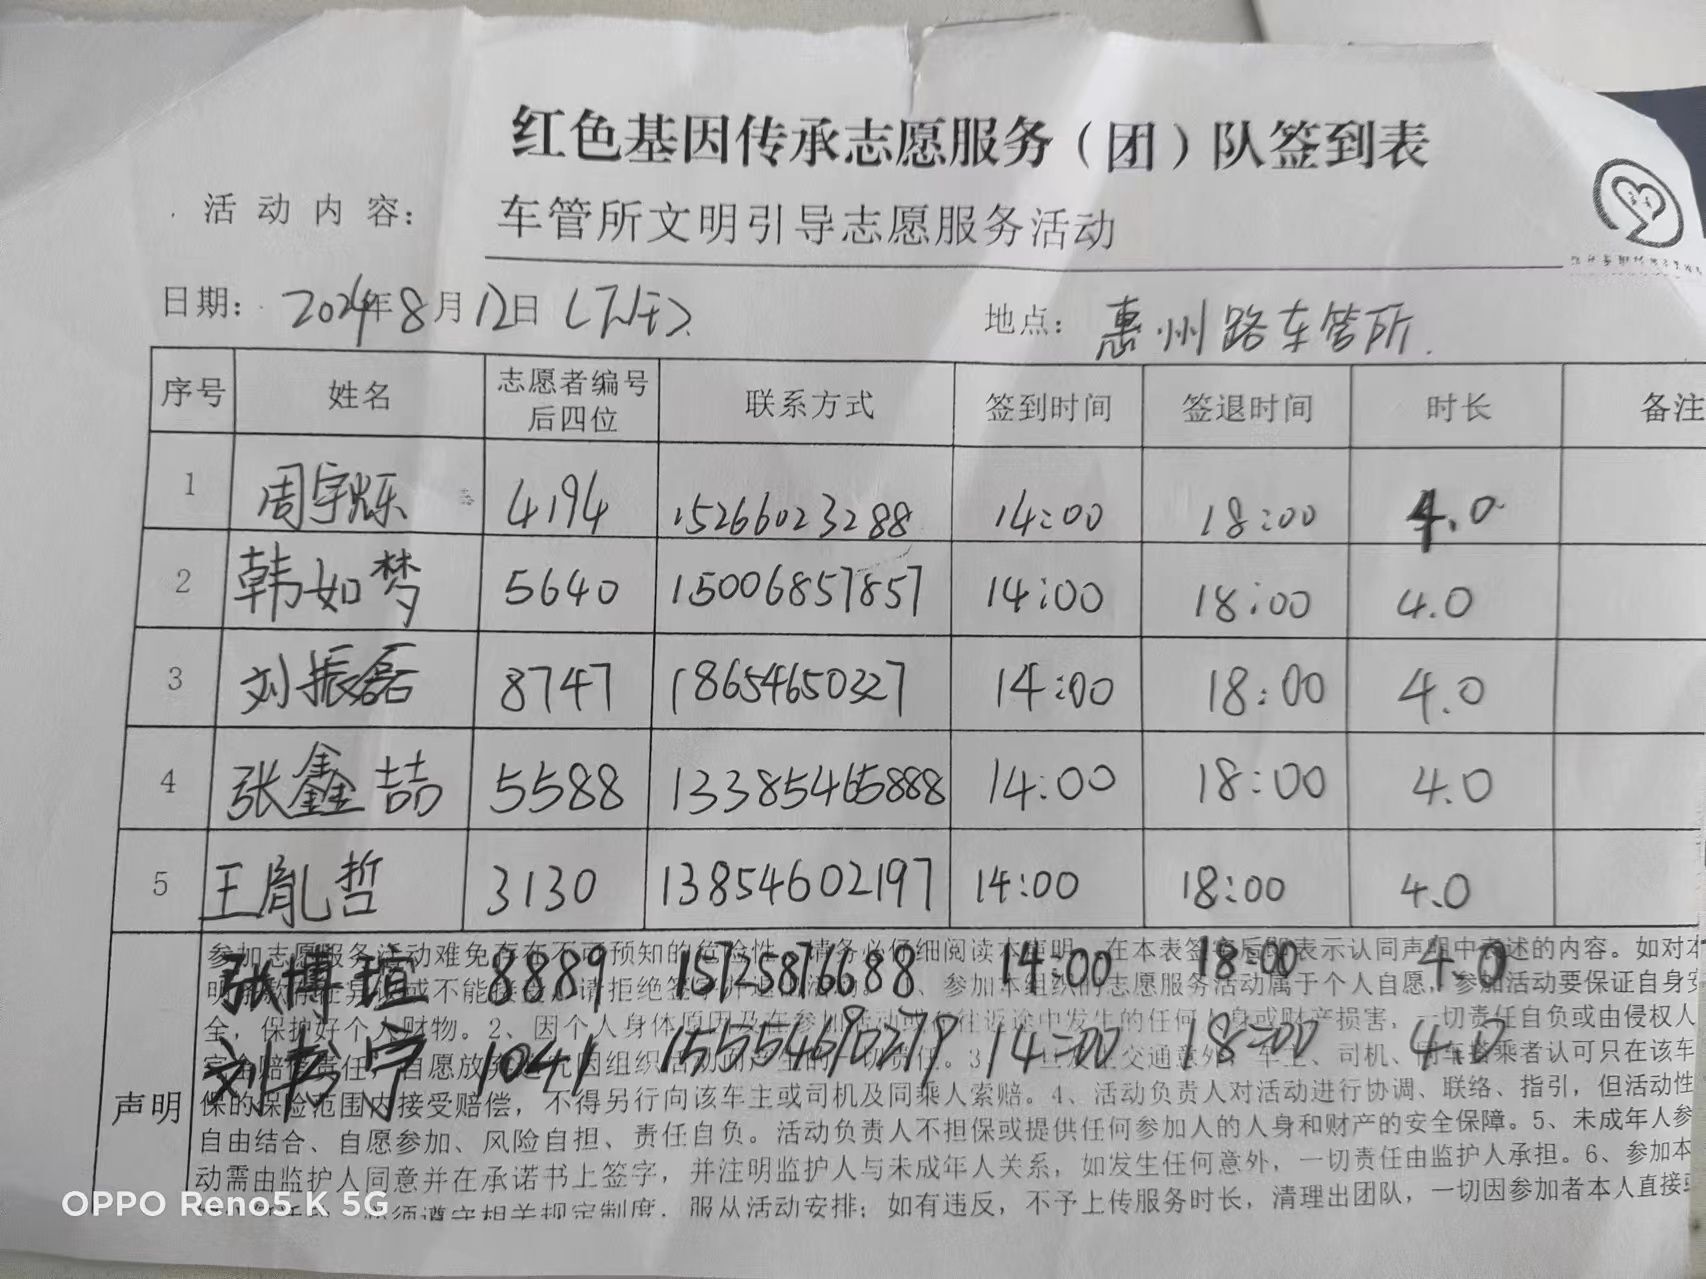 红色基因传承志愿服务（团）队签到表
活动内容： 车管所文明引导志愿服务活动
日期： 2024年8月12日（下午） 地点： 惠州路车管所
序号 姓名 志愿者编号后四位 联系方式 签到时间 签退时间 时长 备注
1 周宇烁 4194 15266023288 14:00 18:00 4.0
2 韩如梦 5640 15006857857 14:00 18:00 4.0
3 刘振磊 8747 18654650327 14:00 18:00 4.0
4 张鑫喆 5588 13385465888 14:00 18:00 4.0
5 王胤哲 3130 13854602197 14:00 18:00 4.0
张博瑄 8889 15725876688 14:00 18:00 4.0
刘书宁 1041 15554690279 14:00 18:00 4.0
声明
参加志愿服务活动难免存在不可预知的危险性，请务必仔细阅读本声明，在本表签字后即表示认同声明中表述的内容。如对本
参加本组织的志愿服务活动属于个人自愿，参加活动要保证自身安
全，保护好个人财物。2、因个人身体原因及在参加活动或往返途中发生的任何人身或财产损害，一切责任自负或由侵权人
司机、同车搭乘者认可只在该车
保的保险范围内接受赔偿，不得另行向该车主或司机及同乘人索赔。4、活动负责人对活动进行协调、联络、指引，但活动性
自由结合、自愿参加、风险自担、责任自负。活动负责人不担保或提供任何参加人的人身和财产的安全保障。5、未成年人参
动需由监护人同意并在承诺书上签字，并注明监护人与未成年人关系，如发生任何意外，一切责任由监护人承担。6、参加本
必须遵守相关规定制度，服从活动安排；如有违反，不予上传服务时长，清理出团队，一切因参加者本人直接或
OPPO Reno5 K 5G